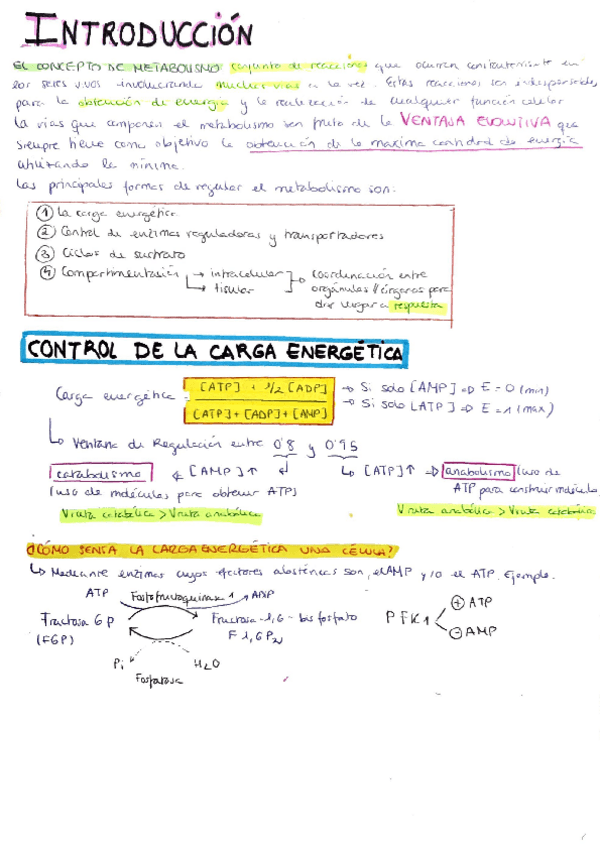 INTRODUCCIÓN
EL CONCEPTO DE METABOLISMO conjunto de reacciones que ocurren constantemente en
los seres vivos involucrando muchas vías a la vez. Estas reacciones son indispensables
para la obtención de energía y la realización de cualquier función celular
La vías que componen el metabolismo son fruto de la VENTAJA EVOLUTIVA que
siempre tiene como objetivo la obtención de la maxima cantidad de energía
utilizando la mínima.
Las principales formas de regular el metabolismo son:
① La carga energética.
② Control de enzimas reguladoras y transportadores
③ Ciclos de sustrato
④ Compartimentasión → intracelular → coordenación entre
→ tisular orgánulos // órganos para
dar lugar a respuesta
CONTROL DE LA CARGA ENERGÉTICA
Carga energética = [ATP] + 1/2 [ADP] → Si solo [AMP] => E = 0 (min)
[ATP] + [ADP] + [AMP] → Si solo [ATP] => E = 1 (max)
↳ Ventana de Regulación entre 0'8 y 0'95
catabolismo ← [AMP]↑ ↲ ↳ [ATP]↑ → anabolismo (uso de
(uso de moléculas para obtener ATP) ATP para construir molécula
Vruta catabólica > Vruta anabólica Vruta anabólica > Vruta catabólica
¿CÓMO SENSA LA CARGA ENERGÉTICA UNA CÉLULA?
↳ Mediante enzimas cuyos efectores alostéricos son, el AMP y/o el ATP. Ejemplo.
ATP Fosfofructoquinasa 1 ADP
Fructosa 6 P Fructosa-1,6-bisfosfato PFK1 ⊕ ATP
(F6P) F1,6P₂) ⊖ AMP
Pi H₂O
Fosfatasa